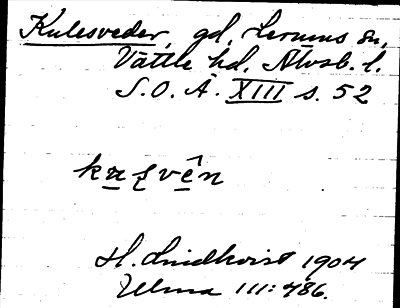 Kulesveder, gd, Lerums sn,
Vättle hd. Älvsb. l.
S. O. Ä. XIII s. 52
H. Lindkvist 1904
Ulma III: 486.